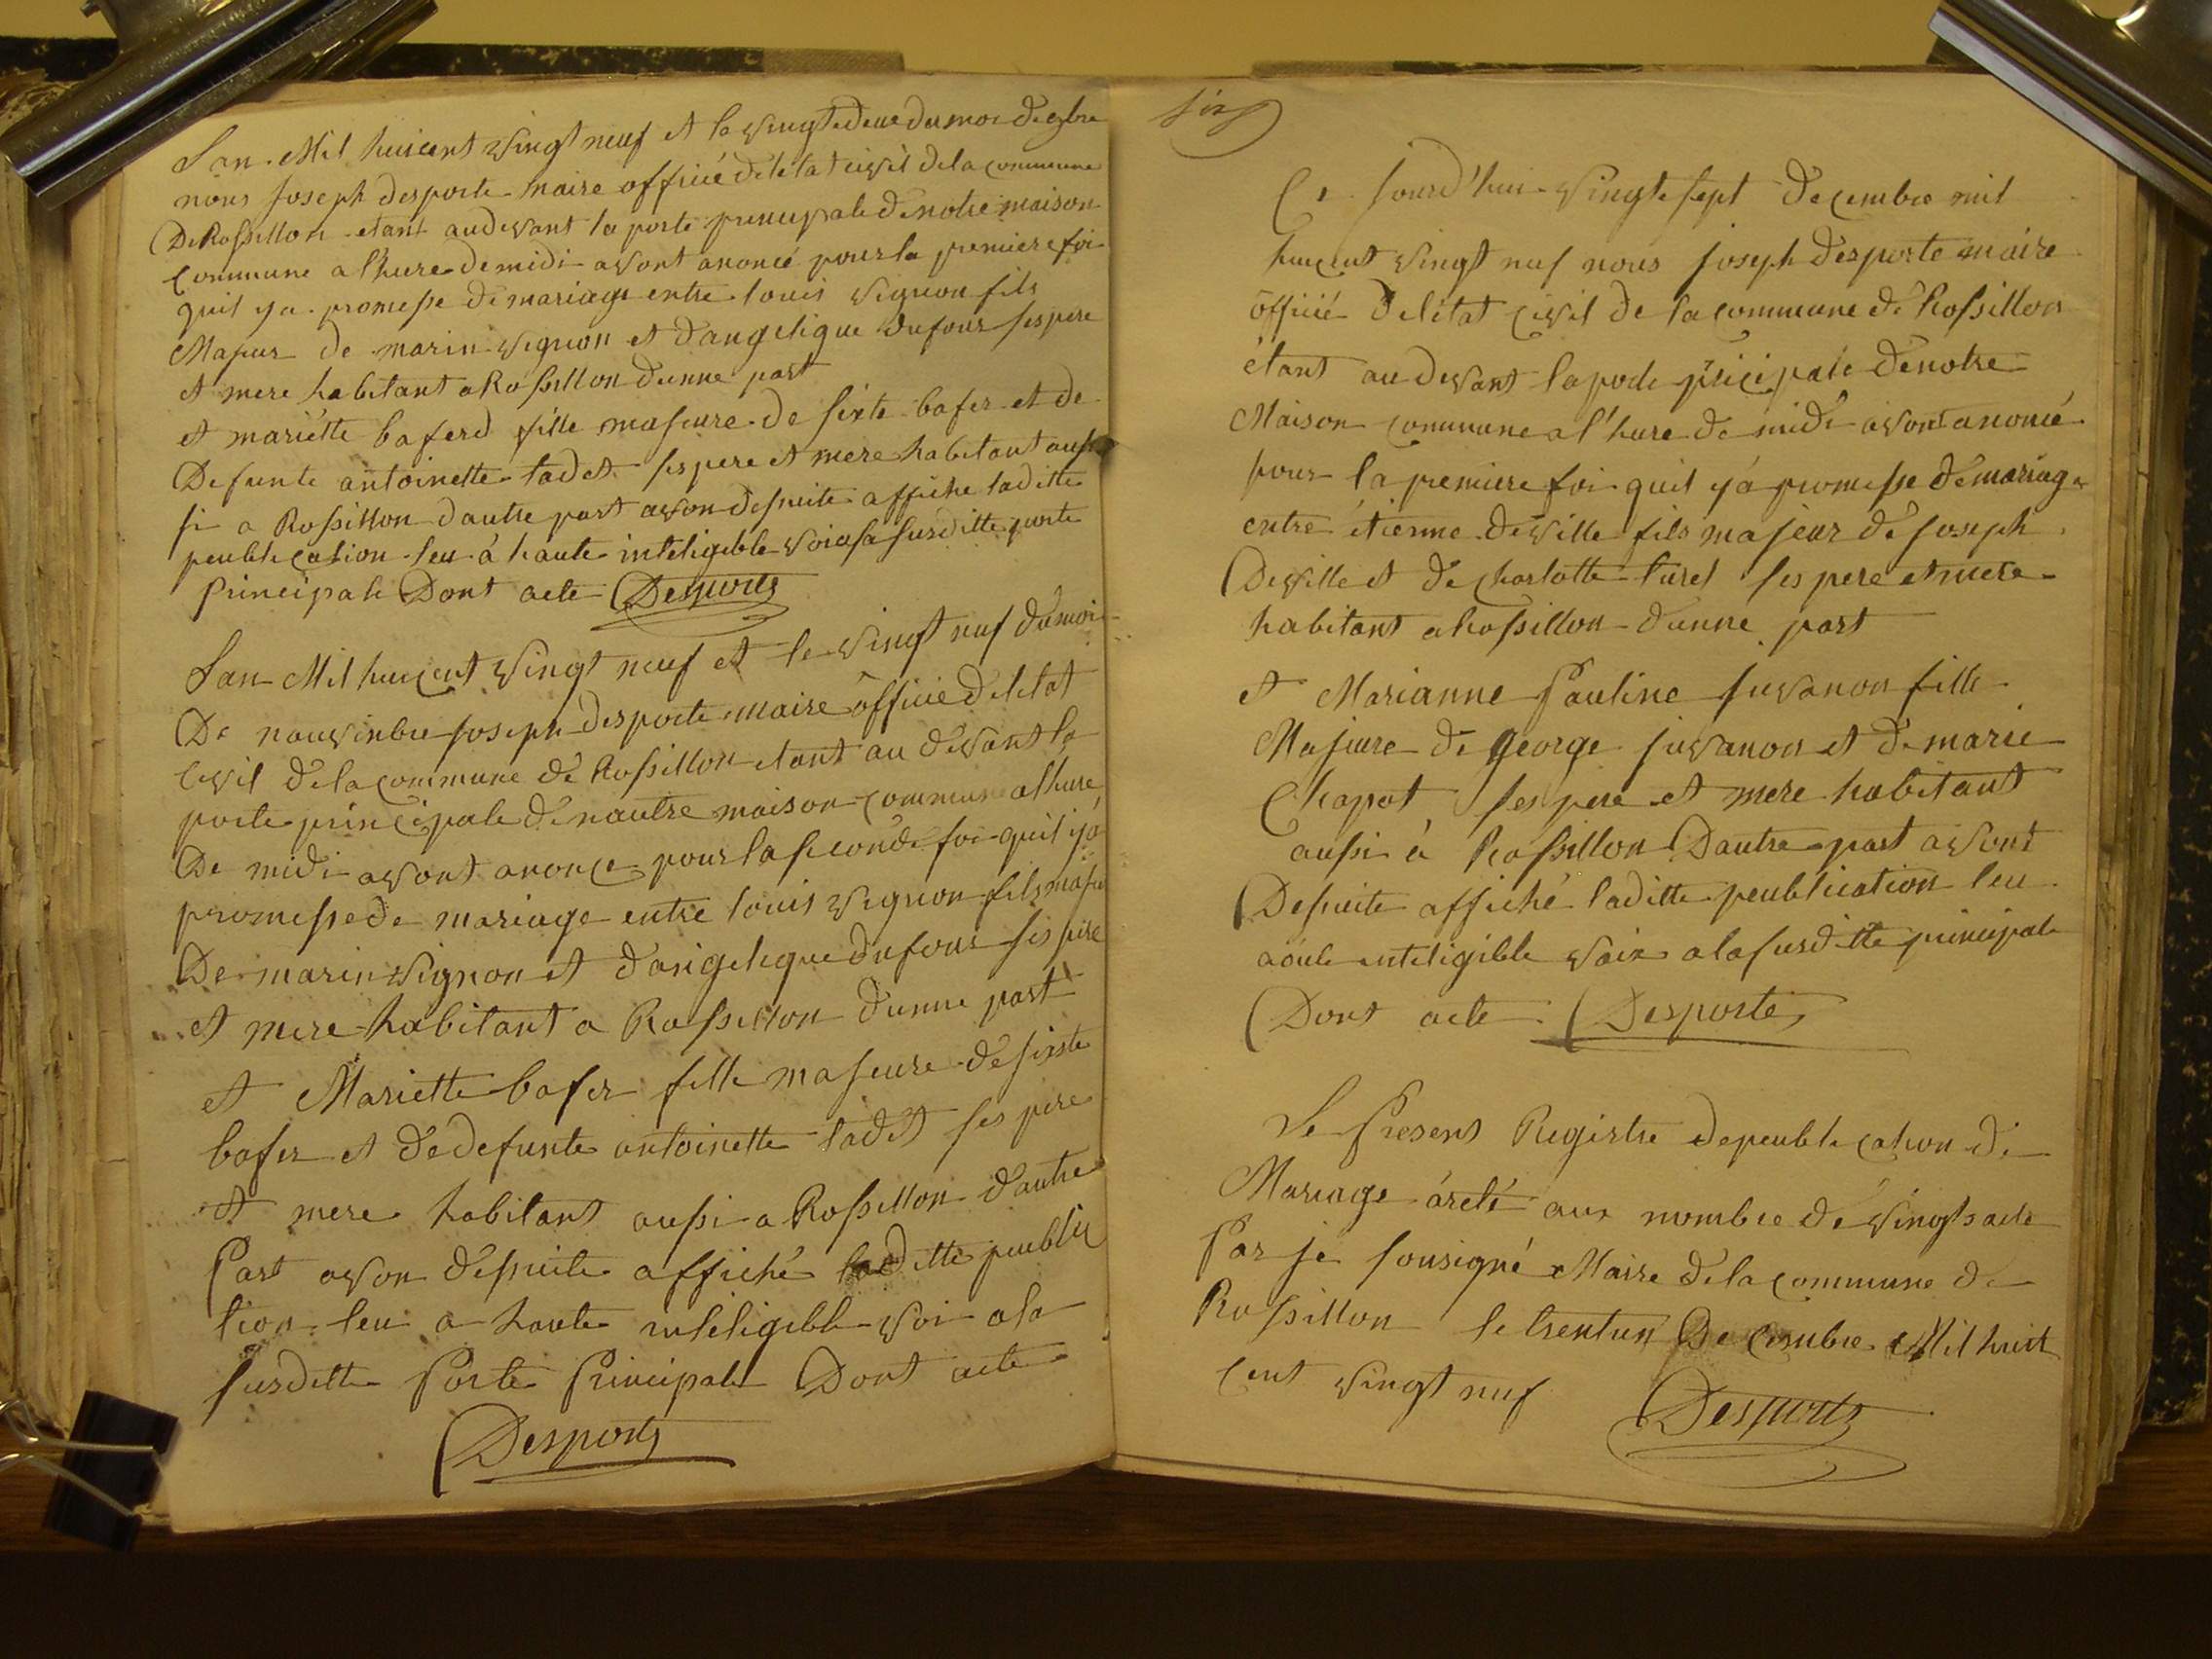 Lan Mil huicent vingt neuf et le vingt e deux du moi de 9bre
nous joseph desporte maire officié de létat civil de la commune
De Rossillon etant audevant la porte principale de notre maison
Commune a lhure de midi avont anoncé pour la premiere foi
quil ya promesse de mariage entre louis vignon fils
Majeur de marin vignon et dangelique dufour ses pere
et mere habitant a Rossillon dunne part
et mariette baferd fille majeure de sixte bafer et de
Defunte antoinette tadet ses pere et mere habitant aus
si a Rossillon dautre part avon desuite affiche laditte
peublication leu à haute inteligible voi a sa susditte porte
Principale Dont acte Desporte
Lan Mil huicent vingt neuf et le vingt nuf du moi
De nouvinbre joseph desporte maire officié de létat
Civil de la commune de Rossillon etant au devant la
porte principale de nautre maison commune a lhure
De midi avont anoncé pour la seconde foi quil ya
promesse de mariage entre louis vignon fils majeu
De marin vignon et dangelique dufour ses pere
et mere habitant a Rossillon dunne part
et Mariette bafer fille majeure de sixte
bafer et de defunte antoinette tadet ses pere
et mere habitant aussi a Rossillon dautre
Part avon desuite affiché laditte peublica
tion leu a haute inteligible voi a la
susditte Porte Principale Dont acte
Desporte
six
Ce jourd'hui vingte sept decembre mil
huicent vingt nuf nous joseph desporte maire
officié de létat civil de la commune de Rossillon
étant au devant la porte pricipale de notre
Maison commune a l'hure de midi avont anoncé
pour la premiere foi quil ya promesse de mariage
entre étienne deville fils majeur de joseph
Deville et de charlotte turel ses pere et mere
habitant a Rossillon dunne part
et Marianne Pauline juvanon fille
Majeure de george juvanon et de marie
Chapot ses pere et mere habitant
aussi à Rossillon Dautre part avont
Desuite affiché laditte peublication leu
a oute inteligible voix a la susditte principale
Dont acte Desporte
Le Present Registre de peublication de
Mariage áreté aux nombre de vingts acte
Par je sousigné Maire de la commune de
Rossillon le trentun Decembre Mil huit
cent vingt nuf Desporte